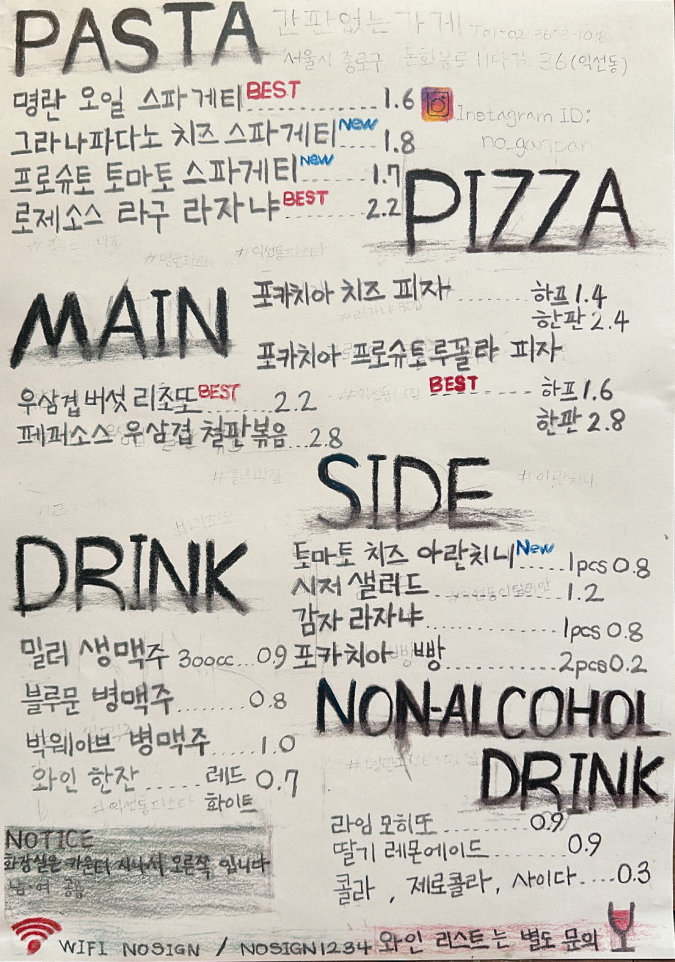 PASTA
간판없는가게
서울시 종로구 돈화문로11다길 36(익선동)
명란 오일 스파게티 BEST ........ 1.6
그라나파다노 치즈 스파게티 New ..... 1.8
프로슈토 토마토 스파게티 New ..... 1.7
로제소스 라구 라자냐 BEST ........ 2.2
Instagram ID:
no_ganpan
PIZZA
포카치아 치즈 피자 ........ 하프 1.4
한판 2.4
포카치아 프로슈토루꼴라 피자
BEST ....... 하프 1.6
한판 2.8
MAIN
우삼겹버섯 리조또 BEST ...... 2.2
페퍼소스 우삼겹 철판볶음 ... 2.8
SIDE
토마토 치즈 아란치니 New ..... 1pcs 0.8
시저 샐러드 ........ 1.2
감자 라자냐 ........ 1pcs 0.8
포카치아 빵 ........ 2pcs 0.2
DRINK
밀러 생맥주 300cc ... 0.9
블루문 병맥주 ........ 0.8
빅웨이브 병맥주 ..... 1.0
와인 한잔 ...... 레드 0.7
화이트
NON-ALCOHOL
DRINK
라임 모히또 ........ 0.9
딸기 레몬에이드 ........ 0.9
콜라, 제로콜라, 사이다 ..... 0.3
NOTICE
화장실은 카운터 지나서 오른쪽 입니다
남·여 공용
WIFI NOSIGN / NOSIGN1234
와인 리스트는 별도 문의